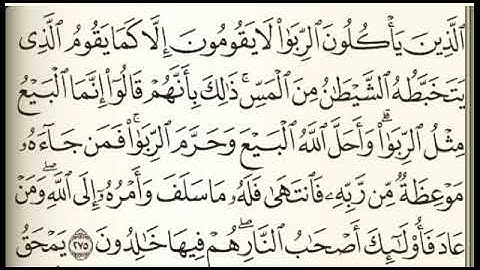 ٱلَّذِينَ يَأْكُلُونَ ٱلرِّبَوٰا۟ لَا يَقُومُونَ إِلَّا كَمَا يَقُومُ ٱلَّذِى
يَتَخَبَّطُهُ ٱلشَّيْطَٰنُ مِنَ ٱلْمَسِّ ۚ ذَٰلِكَ بِأَنَّهُمْ قَالُوٓا۟ إِنَّمَا ٱلْبَيْعُ
مِثْلُ ٱلرِّبَوٰا۟ ۗ وَأَحَلَّ ٱللَّهُ ٱلْبَيْعَ وَحَرَّمَ ٱلرِّبَوٰا۟ ۚ فَمَن جَآءَهُۥ
مَوْعِظَةٌ مِّن رَّبِّهِۦ فَٱنتَهَىٰ فَلَهُۥ مَا سَلَفَ وَأَمْرُهُۥٓ إِلَى ٱللَّهِ ۖ وَمَنْ
عَادَ فَأُو۟لَٰٓئِكَ أَصْحَٰبُ ٱلنَّارِ ۖ هُمْ فِيهَا خَٰلِدُونَ ٢٧٥ يَمْحَقُ